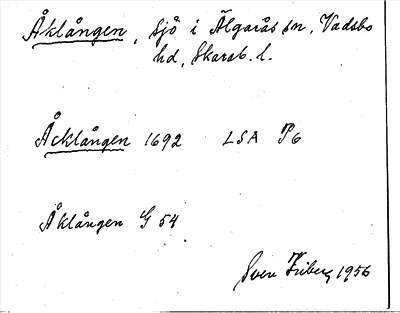 Åklången, sjö i Älgarås sn, Vadsbo
hd, Skarab. l.
Åcklången 1692 LSA P6
Åklången G 54
Sven Friberg 1956